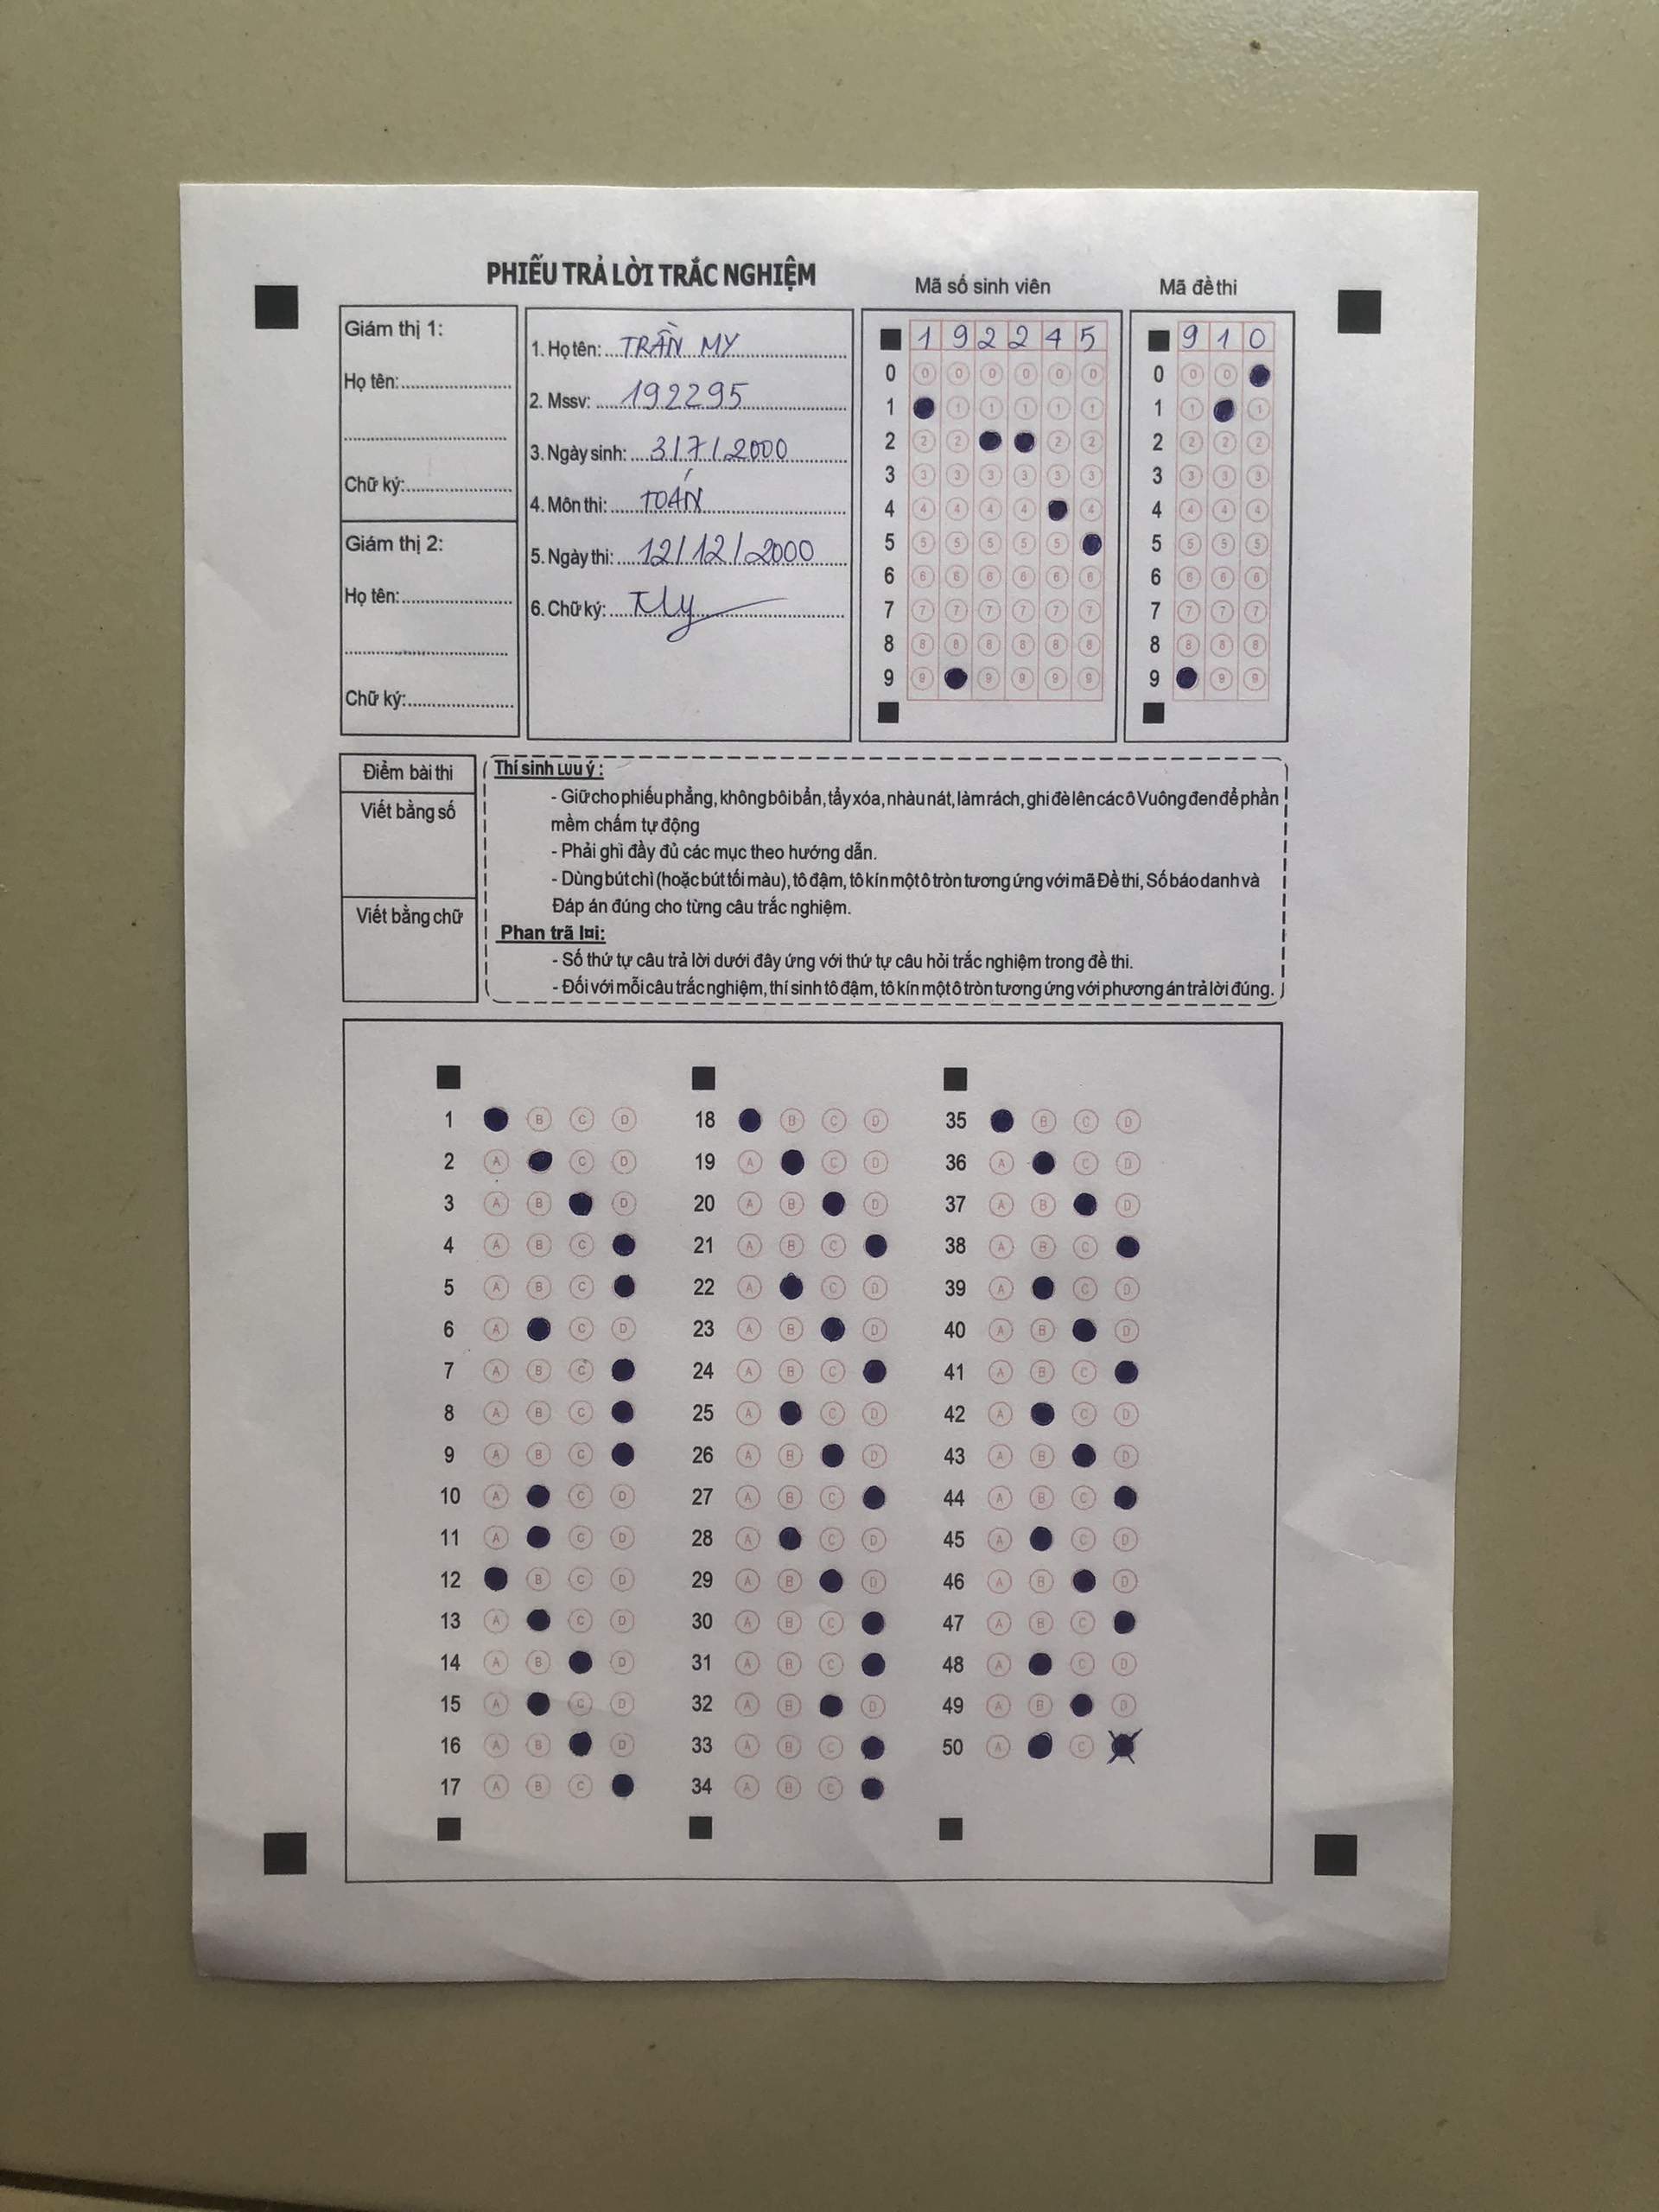 PHIẾU TRẢ LỜI TRẮC NGHIỆM
Mã số sinh viên
Mã đề thi
Giám thị 1:
Họ tên:
Chữ ký:
Giám thị 2:
Họ tên:
Chữ ký:
1. Họ tên: TRẦN MY
2. Mssv: 192295
3. Ngày sinh: 3/7/2000
4. Môn thi: TOÁN
5. Ngày thi: 12/12/2000
6. Chữ ký: My
1 9 2 2 4 5
0 0 0 0 0 0 0
1 1 1 1 1 1
2 2 2 2 2
3 3 3 3 3 3 3
4 4 4 4 4 4
5 5 5 5 5 5
6 6 6 6 6 6 6
7 7 7 7 7 7 7
8 8 8 8 8 8 8
9 9 9 9 9 9
9 1 0
0 0 0
1 1 1
2 2 2 2
3 3 3 3
4 4 4 4
5 5 5 5
6 6 6 6
7 7 7 7
8 8 8 8
9 9 9
Điểm bài thi
Viết bằng số
Viết bằng chữ
Thí sinh Lưu ý :
- Giữ cho phiếu phẳng, không bôi bẩn, tẩy xóa, nhàu nát, làm rách, ghi đè lên các ô Vuông đen để phần
mềm chấm tự động
- Phải ghi đầy đủ các mục theo hướng dẫn.
- Dùng bút chì (hoặc bút tối màu), tô đậm, tô kín một ô tròn tương ứng với mã Đề thi, Số báo danh và
Đáp án đúng cho từng câu trắc nghiệm.
Phan trã lơi:
- Số thứ tự câu trả lời dưới đây ứng với thứ tự câu hỏi trắc nghiệm trong đề thi.
- Đối với mỗi câu trắc nghiệm, thí sinh tô đậm, tô kín một ô tròn tương ứng với phương án trả lời đúng.
1 B C D
2 A C D
3 A B D
4 A B C
5 A B C
6 A C D
7 A B C
8 A B C
9 A B C
10 A C D
11 A C D
12 B C D
13 A C D
14 A B D
15 A C D
16 A B D
17 A B C
18 B C D
19 A C D
20 A B D
21 A B C
22 A C D
23 A B D
24 A B C
25 A C D
26 A B D
27 A B C
28 A C D
29 A B D
30 A B C
31 A B C
32 A B D
33 A B C
34 A B C
35 B C D
36 A C D
37 A B D
38 A B C
39 A C D
40 A B D
41 A B C
42 A C D
43 A B D
44 A B C
45 A C D
46 A B D
47 A B C
48 A C D
49 A B D
50 A C